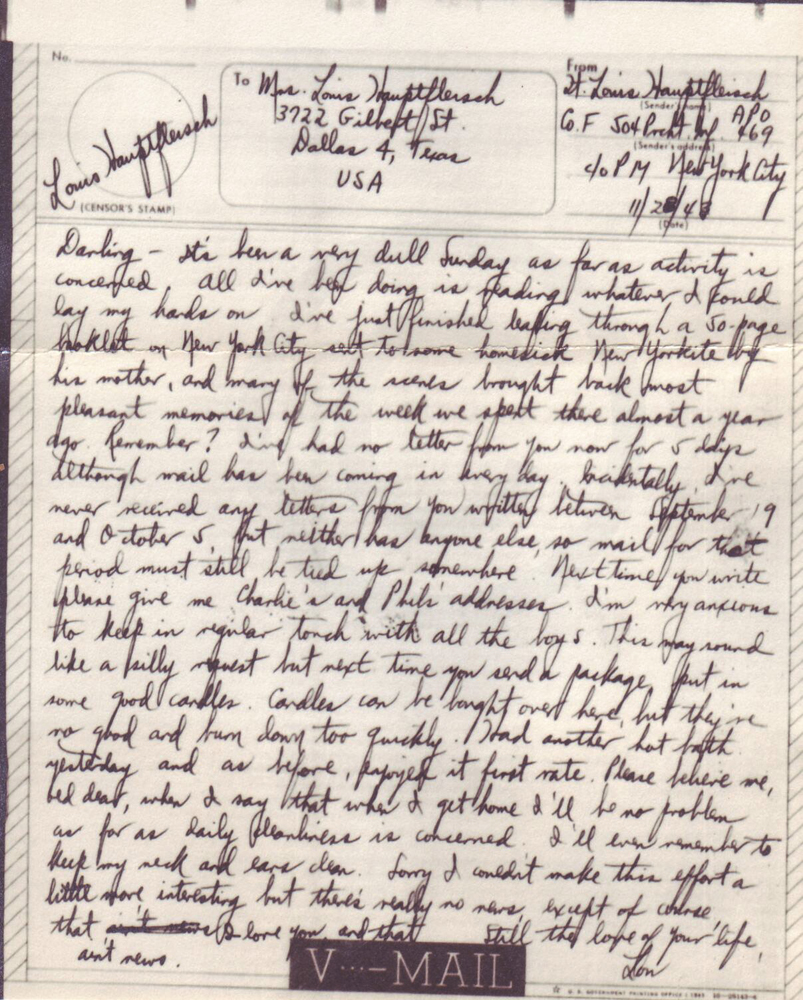 No.
To Mrs. Louis Hauptfleisch
3722 Gilbert St.
Dallas 4, Texas
USA
From
Lt. Louis Hauptfleisch
(Sender's name)
Co. F 504 Prcht. Inf. APO 469
(Sender's address)
c/o PM New York City
11/28/43
(Date)
Louis Hauptfleisch
(CENSOR'S STAMP)
Darling - It's been a very dull Sunday as far as activity is
concerned. All I've been doing is reading whatever I could
lay my hands on. I've just finished leafing through a 50-page
booklet on New York City sent to some homesick New Yorkite by
his mother, and many of the scenes brought back most
pleasant memories of the week we spent there almost a year
ago. Remember? I've had no letter from you now for 5 days
although mail has been coming in every day. Incidentally, I've
never received any letters from you written between September 19
and October 5, but neither has anyone else, so mail for that
period must still be tied up somewhere. Next time you write
please give me Charlie's and Phil's addresses. I'm very anxious
to keep in regular touch with all the boys. This may sound
like a silly request but next time you send a package, put in
some good candles. Candles can be bought over here, but they're
no good and burn down too quickly. Had another hot bath
yesterday and as before, enjoyed it first rate. Please believe me,
dear, when I say that when I get home I'll be no problem
as far as daily cleanliness is concerned. I'll even remember to
keep my neck and ears clean. Sorry I couldn't make this effort a
little more interesting but there's really no news, except of course
that ain't news I love you, and that Still the love of your life,
ain't news. Lou
V···—MAIL
U. S. GOVERNMENT PRINTING OFFICE : 1943